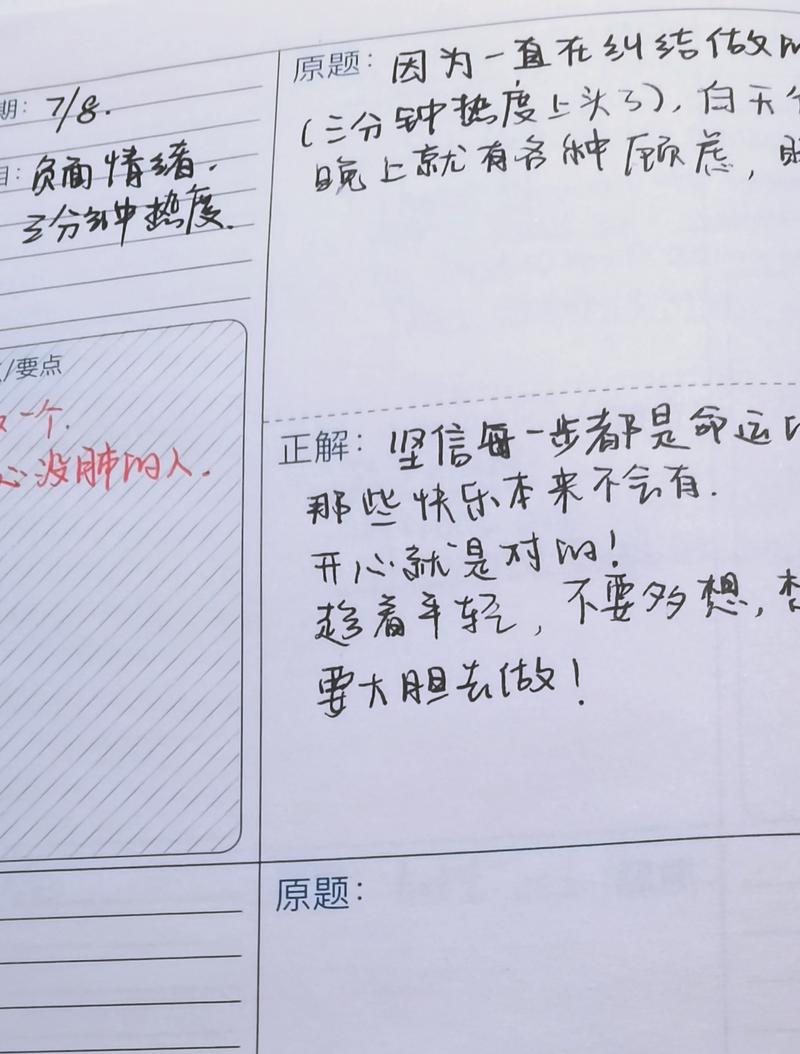 期：7/8.
目：负面情绪.
三分钟热度.
/要点
一个.
心没肺的人.
原题：因为一直在纠结做
(三分钟热度上头了)，白天
晚上就有各种顾虑，
正解：坚信每一步都是命运
那些快乐本来不会有.
开心就是对的！
趁着年轻，不要多想，
要大胆去做！
原题：